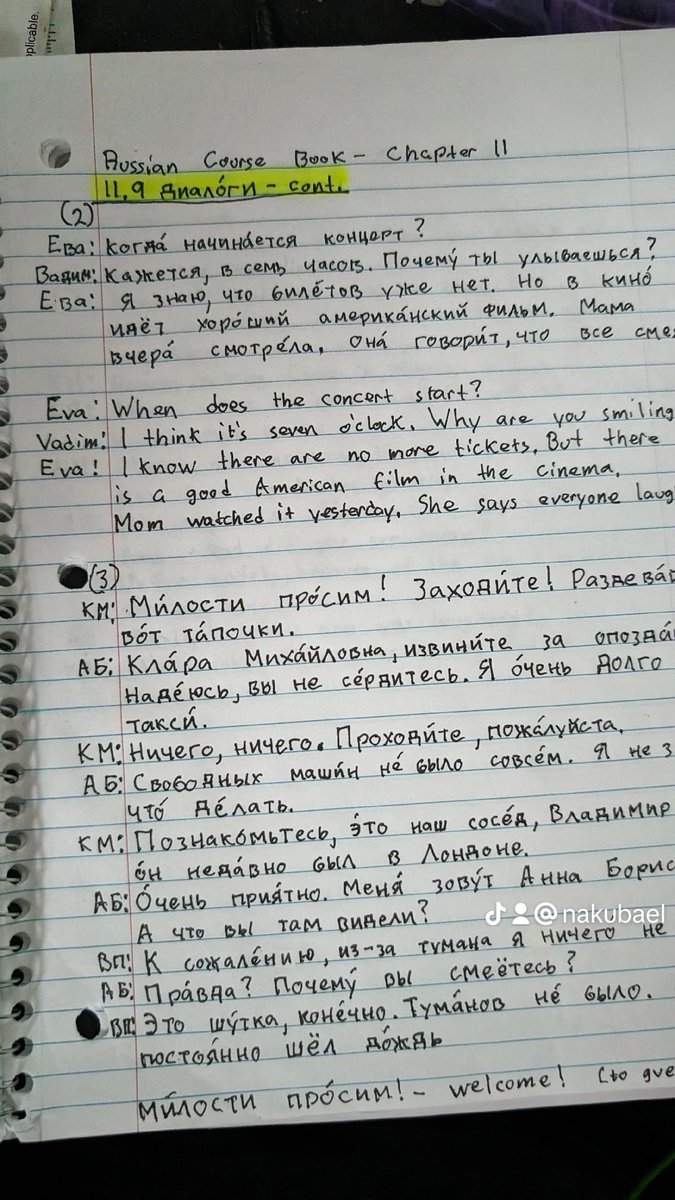 plicable.
Russian Course Book - Chapter 11
11.9 Диало́ги - cont.
(2)
Ева: Когда́ начина́ется концерт?
Вадим: Кажется, в семь часо́в. Почему́ ты улыбаешься?
Ева: Я знаю, что биле́тов уже нет. Но в кино́
идёт хоро́ший америка́нский фильм. Мама
вчера́ смотре́ла, она́ говори́т, что все сме
Eva: When does the concert start?
Vadim: I think it's seven o'clock. Why are you smiling
Eva: I know there are no more tickets. But there
is a good American film in the cinema.
Mom watched it yesterday. She says everyone laug
(3)
КМ: Ми́лости про́сим! Заходи́те! Раздева́й
во́т та́почки.
АБ: Кла́ра Миха́йловна, извини́те за опозда́
Наде́юсь, вы не се́рдитесь. Я о́чень долго
такси́.
КМ: Ничего, ничего. Проходи́те, пожа́луйста.
АБ: Свобо́дных маши́н не́ было совсе́м. Я не з
что́ де́лать.
КМ: Познако́мьтесь, э́то наш сосе́д, Владимир
о́н неда́вно был в Лондоне.
АБ: О́чень прия́тно. Меня́ зову́т Анна Борис
А что вы там видели?
ВП: К сожале́нию, из-за тумана я ничего не
АБ: Пра́вда? Почему́ вы смеётесь?
ВП: Это шу́тка, коне́чно. Тума́нов не́ было.
постоя́нно шёл до́ждь
Ми́лости про́сим! - welcome! (to gue
@nakubael